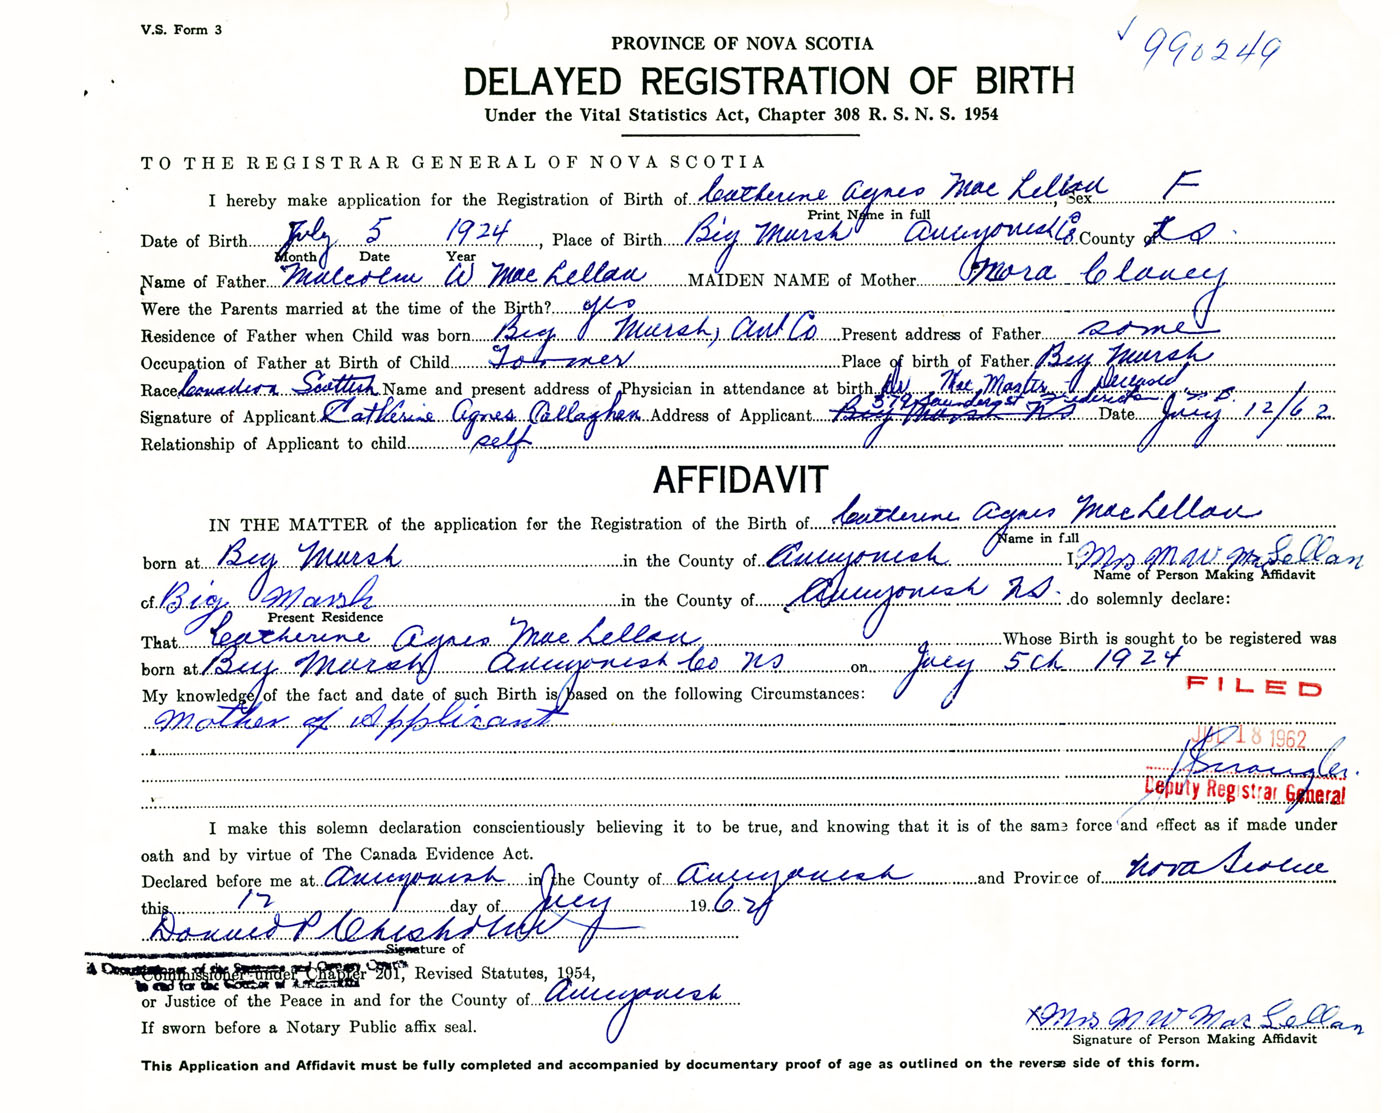 V.S. Form 3
990249
PROVINCE OF NOVA SCOTIA
DELAYED REGISTRATION OF BIRTH
Under the Vital Statistics Act, Chapter 308 R. S. N. S. 1954
TO THE REGISTRAR GENERAL OF NOVA SCOTIA
I hereby make application for the Registration of Birth of Catherine Agnes MacLellan, Sex F
Print Name in full
Date of Birth July 5 1924, Place of Birth Big Marsh Antigonish Co County of NS
Month Date Year
Name of Father Malcolm W MacLellan MAIDEN NAME of Mother Mora Clancy
Were the Parents married at the time of the Birth? yes
Residence of Father when Child was born Big Marsh, Ant Co Present address of Father same
Occupation of Father at Birth of Child Farmer Place of birth of Father Big Marsh
Race Canadian Scottish Name and present address of Physician in attendance at birth Dr Mac Master Deceased
579 Saunders St Fredericton N B.
Signature of Applicant Catherine Agnes Callaghan Address of Applicant Big Marsh NS Date July 12/62
Relationship of Applicant to child self
AFFIDAVIT
IN THE MATTER of the application for the Registration of the Birth of Catherine Agnes MacLellan
Name in full
born at Big Marsh in the County of Antigonish I, Mrs M W MacLellan
Name of Person Making Affidavit
of Big Marsh in the County of Antigonish NS. do solemnly declare:
Present Residence
That Catherine Agnes MacLellan Whose Birth is sought to be registered was
born at Big Marsh Antigonish Co NS on July 5th 1924
My knowledge of the fact and date of such Birth is based on the following Circumstances:
FILED
Mother of Applicant
JUL 18 1962
Deputy Registrar General
I make this solemn declaration conscientiously believing it to be true, and knowing that it is of the same force and effect as if made under
oath and by virtue of The Canada Evidence Act.
Declared before me at Antigonish in the County of Antigonish and Province of Nova Scotia
this 12 day of July 1962
Donald P Chisholm
Signature of
Commissioner under Chapter 201, Revised Statutes, 1954,
or Justice of the Peace in and for the County of Antigonish
If sworn before a Notary Public affix seal.
x Mrs M W MacLellan
Signature of Person Making Affidavit
This Application and Affidavit must be fully completed and accompanied by documentary proof of age as outlined on the reverse side of this form.